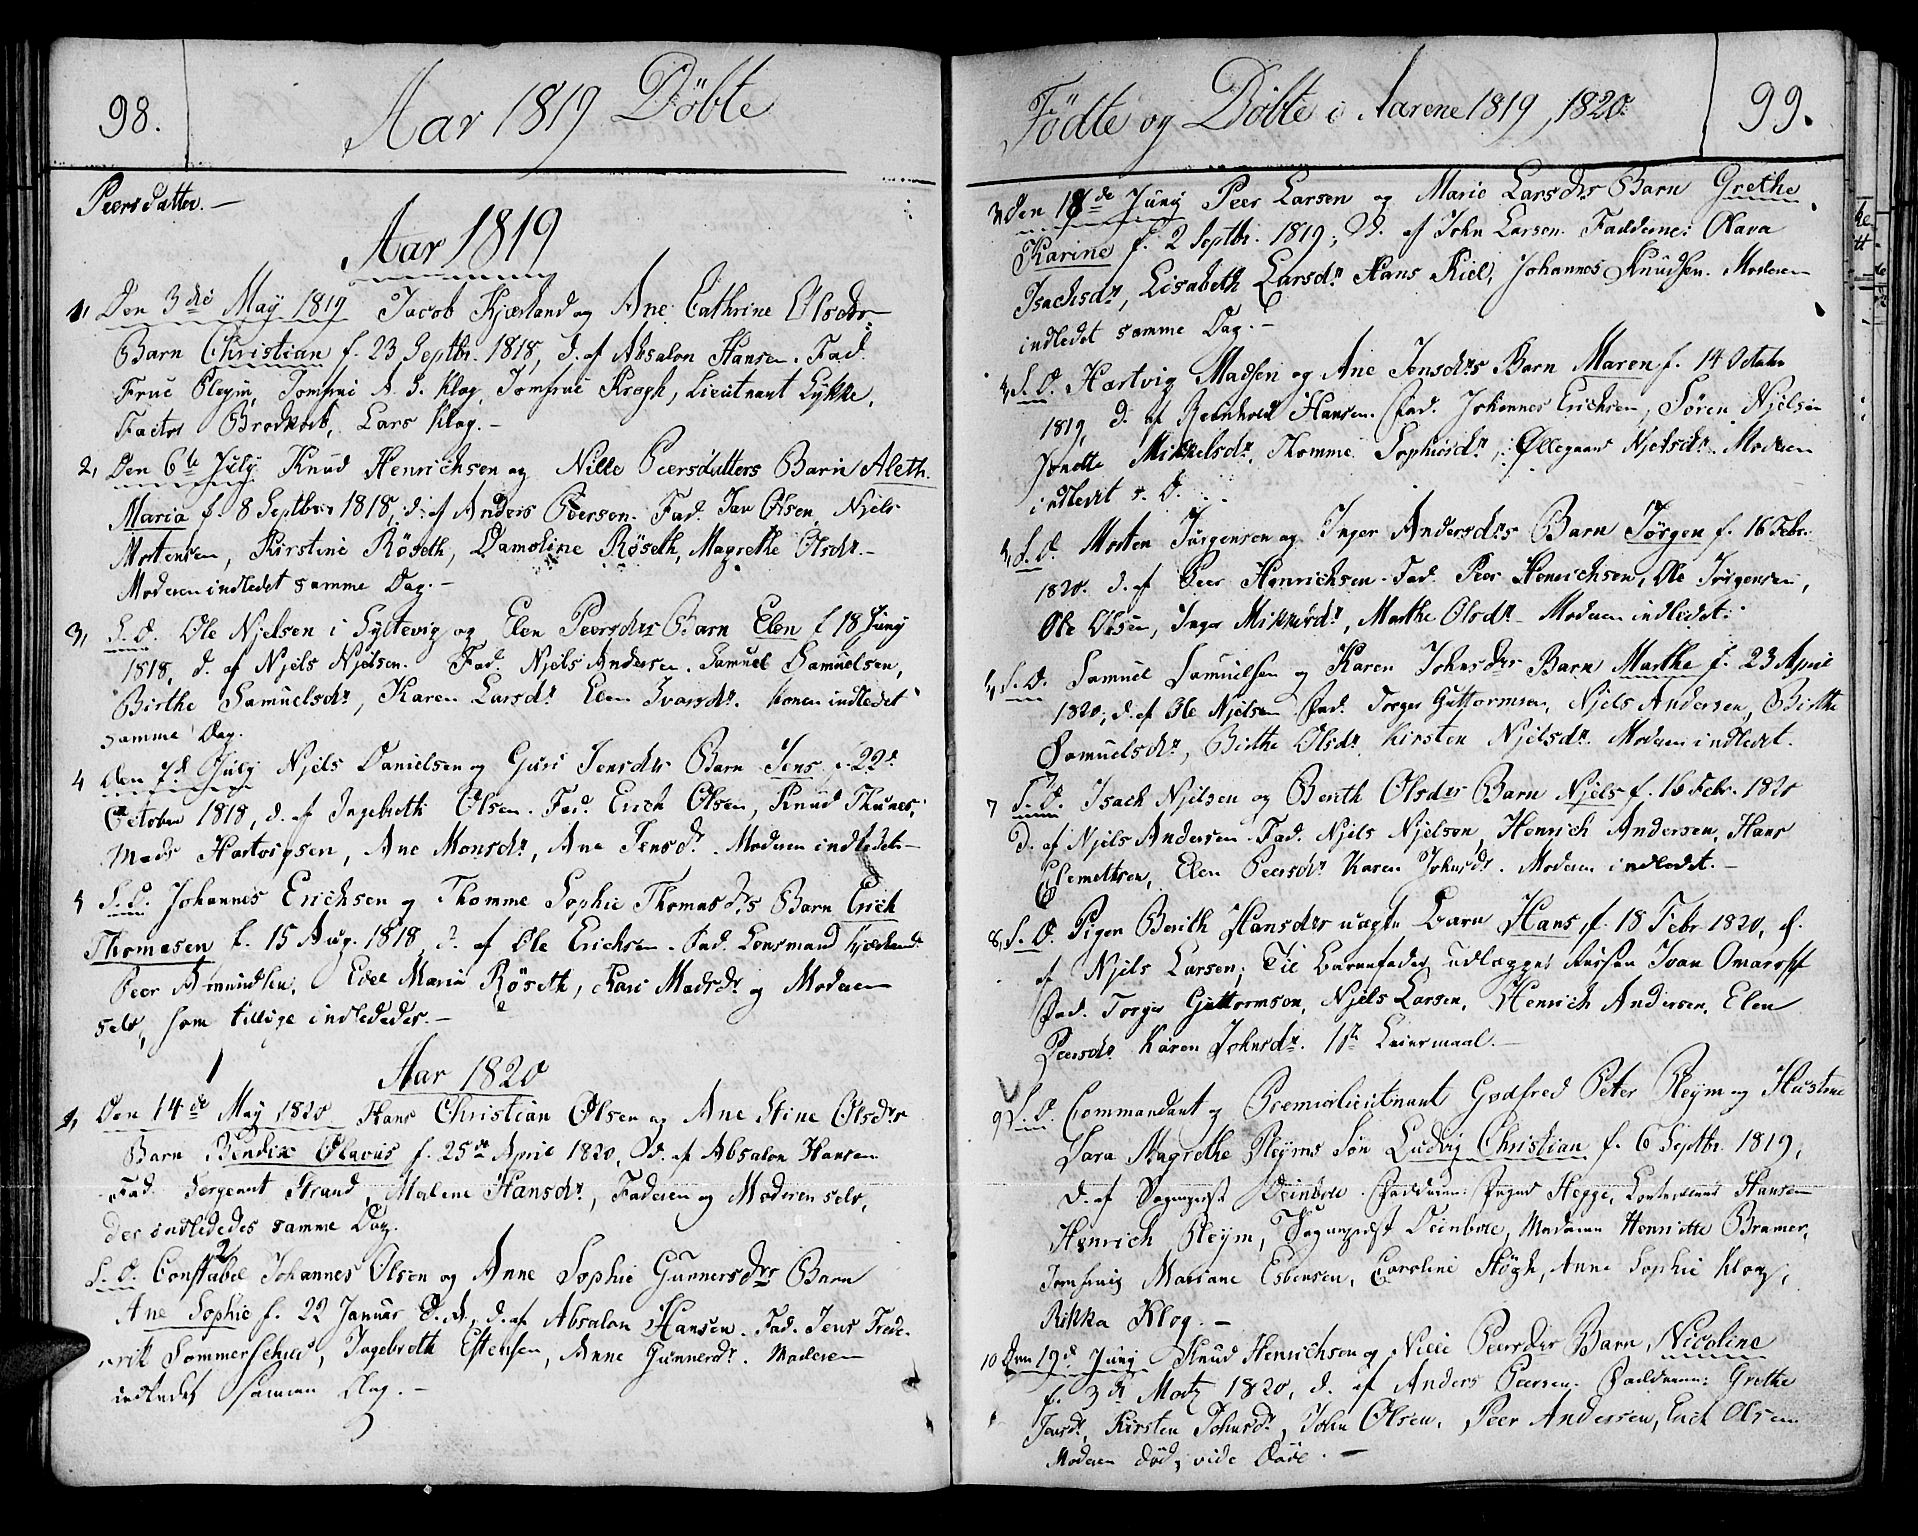 98.
Aar 1819 Döbte
Peersdatter. —
Aar 1819
1, Den 3die May 1819 Jacob Kjærland og Ane Cathrine Olsdrs
Barn Christian f. 23 Septbr. 1818, d. af Absalon Hansen. Fad.
Frue Pleym, Jomfrui A. S. Klog, Jomfrue Krogh, Lieutnant Lykke,
Factor Brodkorb, Lars Klog. —
2, Den 6te July Knud Henrichsen og Nille Peersdatters Barn Aleth
Maria f. 8 Septbr 1818, d. af Anders Peersen. Fad. Jan Olsen, Njels
Mortensen, Kirstine Röseth, Damoline Röseth, Magrethe Olsdr. —
Moderen indledet samme Dag. —
3, S. D. Ole Njelsen i Syltevig og Elen Peersdrs Barn Elen f 18 Juny
1818, d. af Njels Njelsen. Fad. Njels Andersen, Samuel Samuelsen,
Birthe Samuelsdr, Karen Larsdr Elen Ivarsdr. Konen indledet
samme Dag.
4 den 7d July Njels Danielsen og Guri Jensdrs Barn Jens f. 22d
October 1818, d. af Ingebrth Olsen. Fad. Erich Olsen, Knud Thunes,
Mads Hartvigsen, Ane Monsdr, Ane Jensdr. Moderen indledet —
5 S. D. Johannes Erichsen og Thomme Sophie Thomasdrs Barn Erich
Thomasen f. 15 Aug. 1818 d. af Ole Erichsen. Fad. Lensmand Kjærland
Peer Amundsen, Edel Maria Röseth, Kari Madsdr og Moderen
selv, som tillige indlededes. —
Aar 1820
1, Den 14de May 1820 Hans Christian Olsen og Ane Stine Olsdrs
Barn Bendix Olavus f. 25de April 1820, D. af Absalon Hansen
Fad. Sergeant Strand, Malene Hansdr, Faderen og Moderen selv,
der indledes samme Dag.
2
S. D. Constabel Johannes Olsen og Anne Sophie Gunnersdrs Barn
Ane Sophie f. 22 Januar D. A, d. af Absalon Hansen. Fad. Jens Frede-
rik Sommerschied, Ingebreth Estensen, Anne Gunnersdr. Moderen
indledet samme Dag. —
Födte og Döbte i Aarene 1819, 1820.
99.
3, Den 18de Juny Peer Larsen og Marie Larsdrs Barn Grethe
Karine f. 2 Septbr. 1819; D. af John Larsen. Fadderne: Olava
Isachsdr, Lisabeth Larsdr Hans Kiel, Johannes Knudsen. Moderen
indledet samme Dag. —
4, S. D. Hartvig Madsen og Ane Jensdrs Barn Maren f. 14 October
1819, d. af Reinhold Hansen. Fad. Johannes Erichsen, Sören Njelsen
Mikkelsdr, Thomme Sophiesdr, Ollegaard Njelsdr. Moderen
indledet s. D.
5, S. D. Morten Jörgensen og Inger Andersdrs Barn Jörgen f. 16 Febr.
1820. d. af Peer Henrichsen. Fad. Peer Henrichsen, Ole Jörgensen,
Ole Olsen, Inger Mikkelsdr, Marthe Olsdr — Moderen indledet.
6, S. D. Samuel Samuelsen og Karen Johnsdrs Barn Marthe f. 23 April
1820; d. af Ole Njelsen Fad. Torger Guttormsen, Njels Andersen, Birthe
Samuelsdr, Birthe Olsdr Kirsten Njelsdr. Moderen indledet.
7 S. D. Isach Njelsen og Berith Olsdrs Barn Njels f. 16 Febr. 1820
D. af Njels Andersen. Fad. Njels Njelsen, Henrich Andersen, Hans
Clemetsen, Elen Peersdr Karen Johnsdr. Moderen indledet. —
8, S. D. Pigen Berith Hansdrs uægte Barn Hans f. 18 Febr 1820, d.
af Njels Larsen; Til Barnefader udlægges Russen Ivan Omaroff
Fad. Torger Guttormsen, Njels Larsen, Henrich Andersen, Elen
Peersdr Karen Johnsdr. 1ste Leiermaal. —
9, S. D. Commandant og Premierlieutnant Godfred Peter Pleym og Hustrue
Sara Magrethe Pleyms Sön Ludvig Christian f. 6 Septbr. 1819,
d. af Sognepræst Deinboll. Fadderne: Foged Hegge, Hansen
Henrich Pleym, Sognepræst Deinboll, Madamen Henriette Bremer,
Jomfruerne Mariane Esbensen, Caroline Högh, Anne Sophie Klog,
Rikka Klog. —
10 Den 19d Juny Knud Henrichsen og Nille Peersdrs Barn Nicoline
f. 3di Martz 1820, d. af Anders Peersen. Fadderne: Grethe
Kirsten Johnsdr, John Olsen, Peer Andersen, Erich Olsen
Moderen död, vide Döde. —